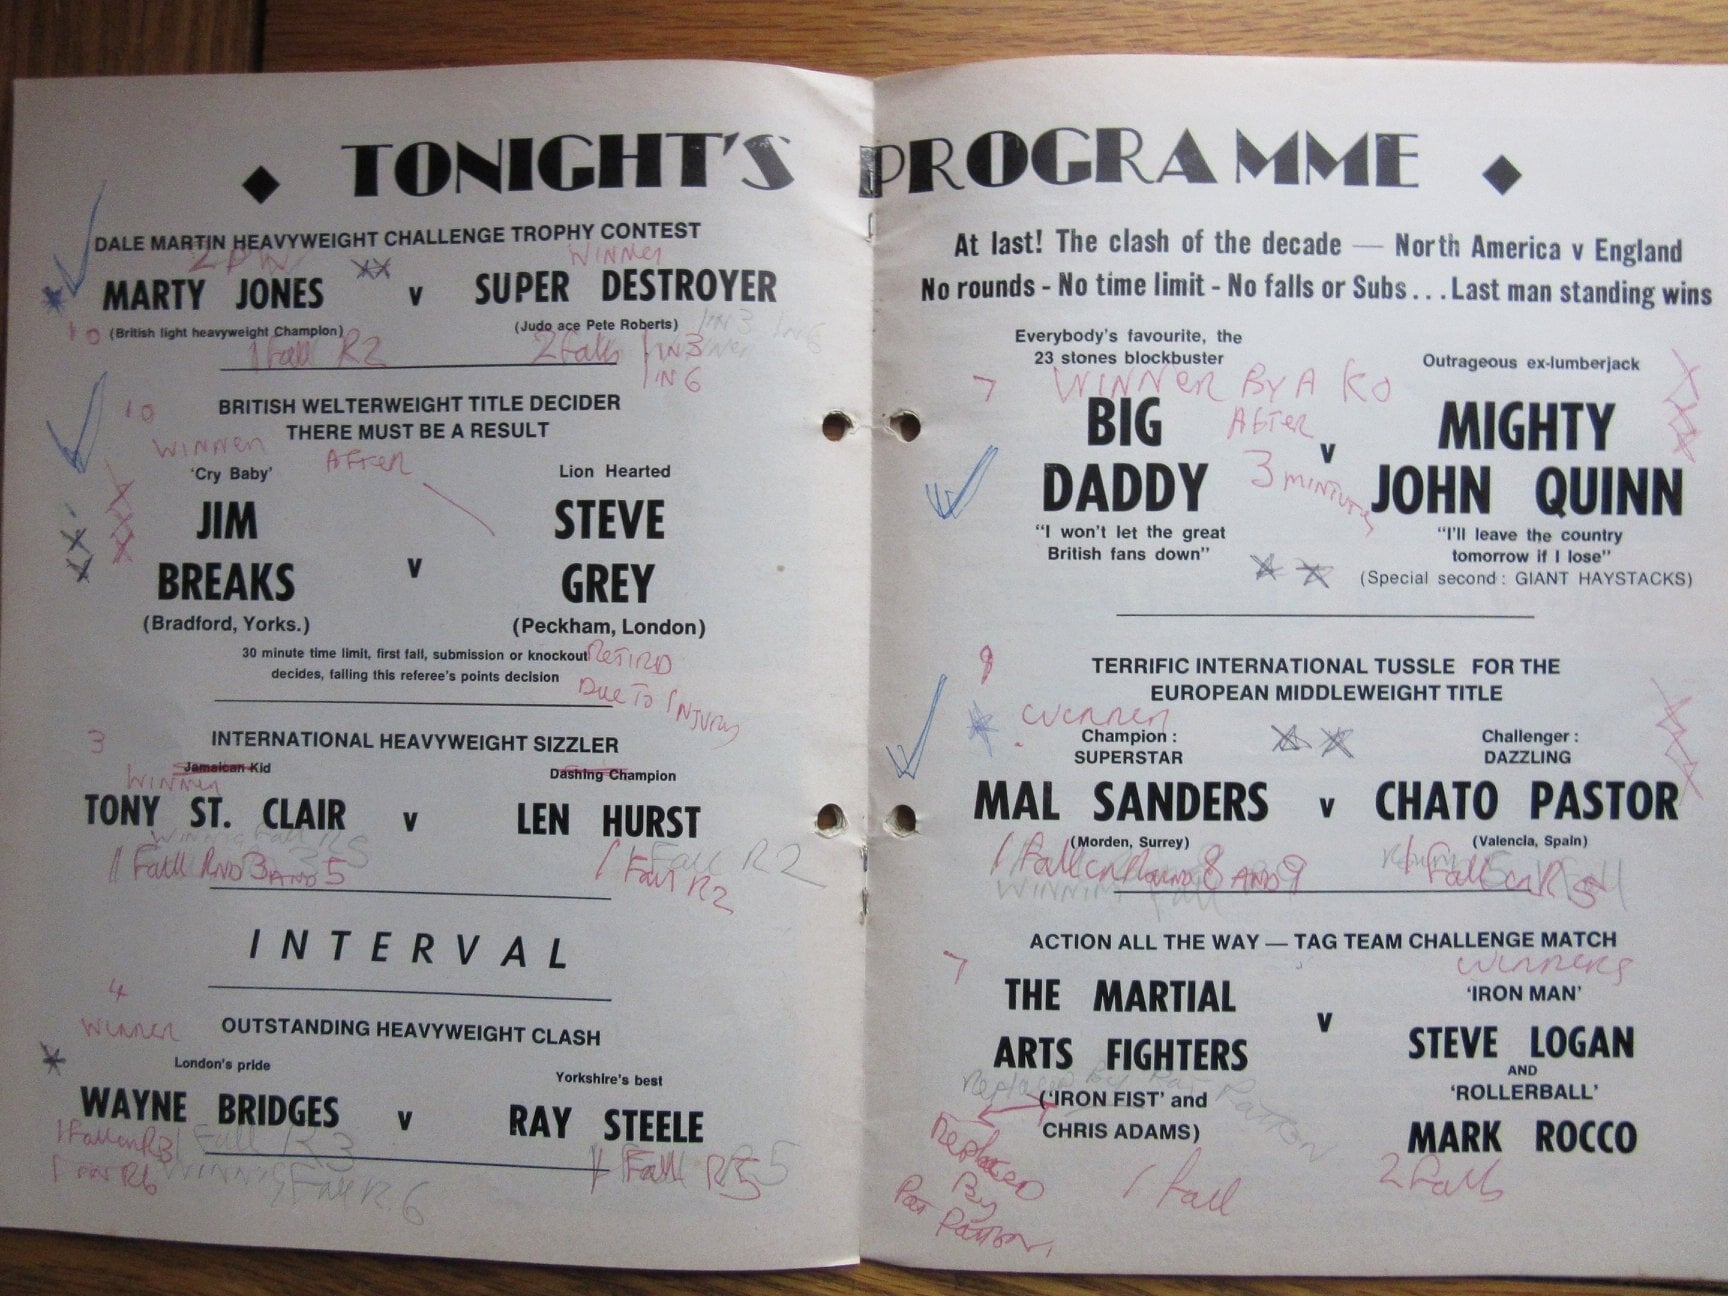 TONIGHT'S PROGRAMME
DALE MARTIN HEAVYWEIGHT CHALLENGE TROPHY CONTEST
WINNER
MARTY JONES v SUPER DESTROYER
10 (British light heavyweight Champion) (Judo ace Pete Roberts)
1 Fall R2 2 Falls 1 IN 3
1 IN 6
10 BRITISH WELTERWEIGHT TITLE DECIDER
THERE MUST BE A RESULT
WINNER AFTER
'Cry Baby' Lion Hearted
JIM STEVE
BREAKS v GREY
(Bradford, Yorks.) (Peckham, London)
30 minute time limit, first fall, submission or knockout RETIRD
decides, failing this referee's points decision DUE TO INJURY
3 INTERNATIONAL HEAVYWEIGHT SIZZLER
Jamaican Kid Dashing Champion
WINNER
TONY ST. CLAIR v LEN HURST
1 Fall RND 3 AND 5 1 Fall R2
Fall R2
INTERVAL
4
WINNER OUTSTANDING HEAVYWEIGHT CLASH
London's pride Yorkshire's best
WAYNE BRIDGES v RAY STEELE
1 Fall in R3 Fall R3 1 Fall R5
1 in R6 WINNING Fall R.6
At last! The clash of the decade — North America v England
No rounds - No time limit - No falls or Subs...Last man standing wins
Everybody's favourite, the
23 stones blockbuster Outrageous ex-lumberjack
7 WINNER BY A KO
AFTER
3 MINTUTS
BIG MIGHTY
DADDY v JOHN QUINN
"I won't let the great "I'll leave the country
British fans down" tomorrow if I lose"
(Special second : GIANT HAYSTACKS)
9 TERRIFIC INTERNATIONAL TUSSLE FOR THE
EUROPEAN MIDDLEWEIGHT TITLE
WINNER
Champion : Challenger :
SUPERSTAR DAZZLING
MAL SANDERS v CHATO PASTOR
(Morden, Surrey) (Valencia, Spain)
1 Fall in Round 8 AND 9 1 Fall in R5
WINNING Fall
ACTION ALL THE WAY — TAG TEAM CHALLENGE MATCH
7 WINNERS
THE MARTIAL 'IRON MAN'
ARTS FIGHTERS v STEVE LOGAN
Replaced By Pat Patton
AND
('IRON FIST' and 'ROLLERBALL'
CHRIS ADAMS) MARK ROCCO
Replaced
By
Pat Patton.
1 Fall 2 Falls